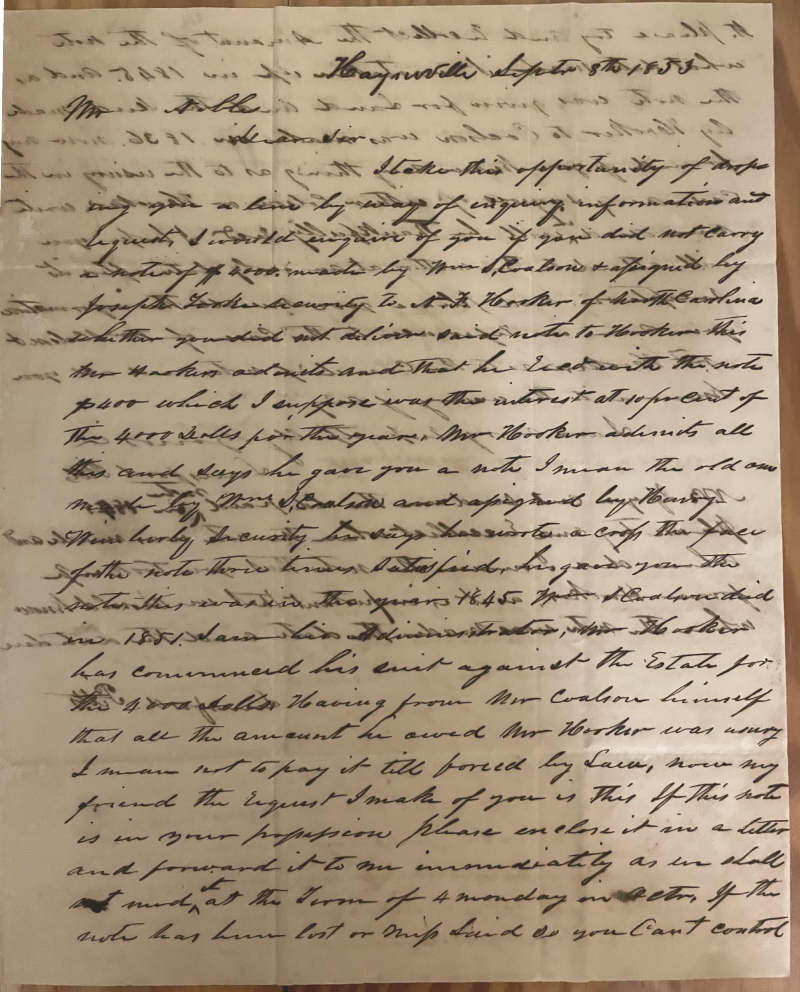 Haynville Septr 8th 1853
Mr Noble
Dear Sir
I take this opportunity of drop-
ing you a line by way of enquiry, information and
request, I would enquire of you if you did not carry
a note of $4000. made by Wm S, Coalson & assigned by
Joseph Tooke security to N. F. Hooker of North Carolina
whether you did not deliver said note to Hooker this
Mr Hookers admits and that he Recd with the note
$400 which I suppose was the interest at 10 pr cent of
the 4000 Dolls for the year, Mr Hooker admits all
this and says he gave you a note I mean the old one
made by Wm S, Coalson and assigned by Harvy
Wimberly Security he says he wrote a cross the face
of the note three times Satisfied, he gave you the
note this was in the year 1845 Wm S Coalson did
in 1851. I am his Administrator, Mr Hooker
has commenced his suit against the Estate for
the 4000 dolls, Having from Mr Coalson himself
that all the amount he owed Mr Hooker was usury
I mean not to pay it till forced by Law, now my
friend the request I make of you is this If this note
is in your possession please enclose it in a letter
and forward it to me immediatily as we shall
need it at the Term of 4 monday in Octr, If the
note has been lost or miss Laid so you Cant control